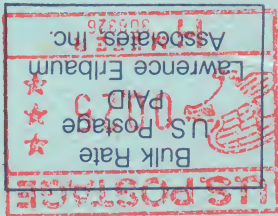 Bulk Rate
U.S. Postage
PAID
Lawrence Erlbaum
Associates, Inc.
U.S. POSTAGE